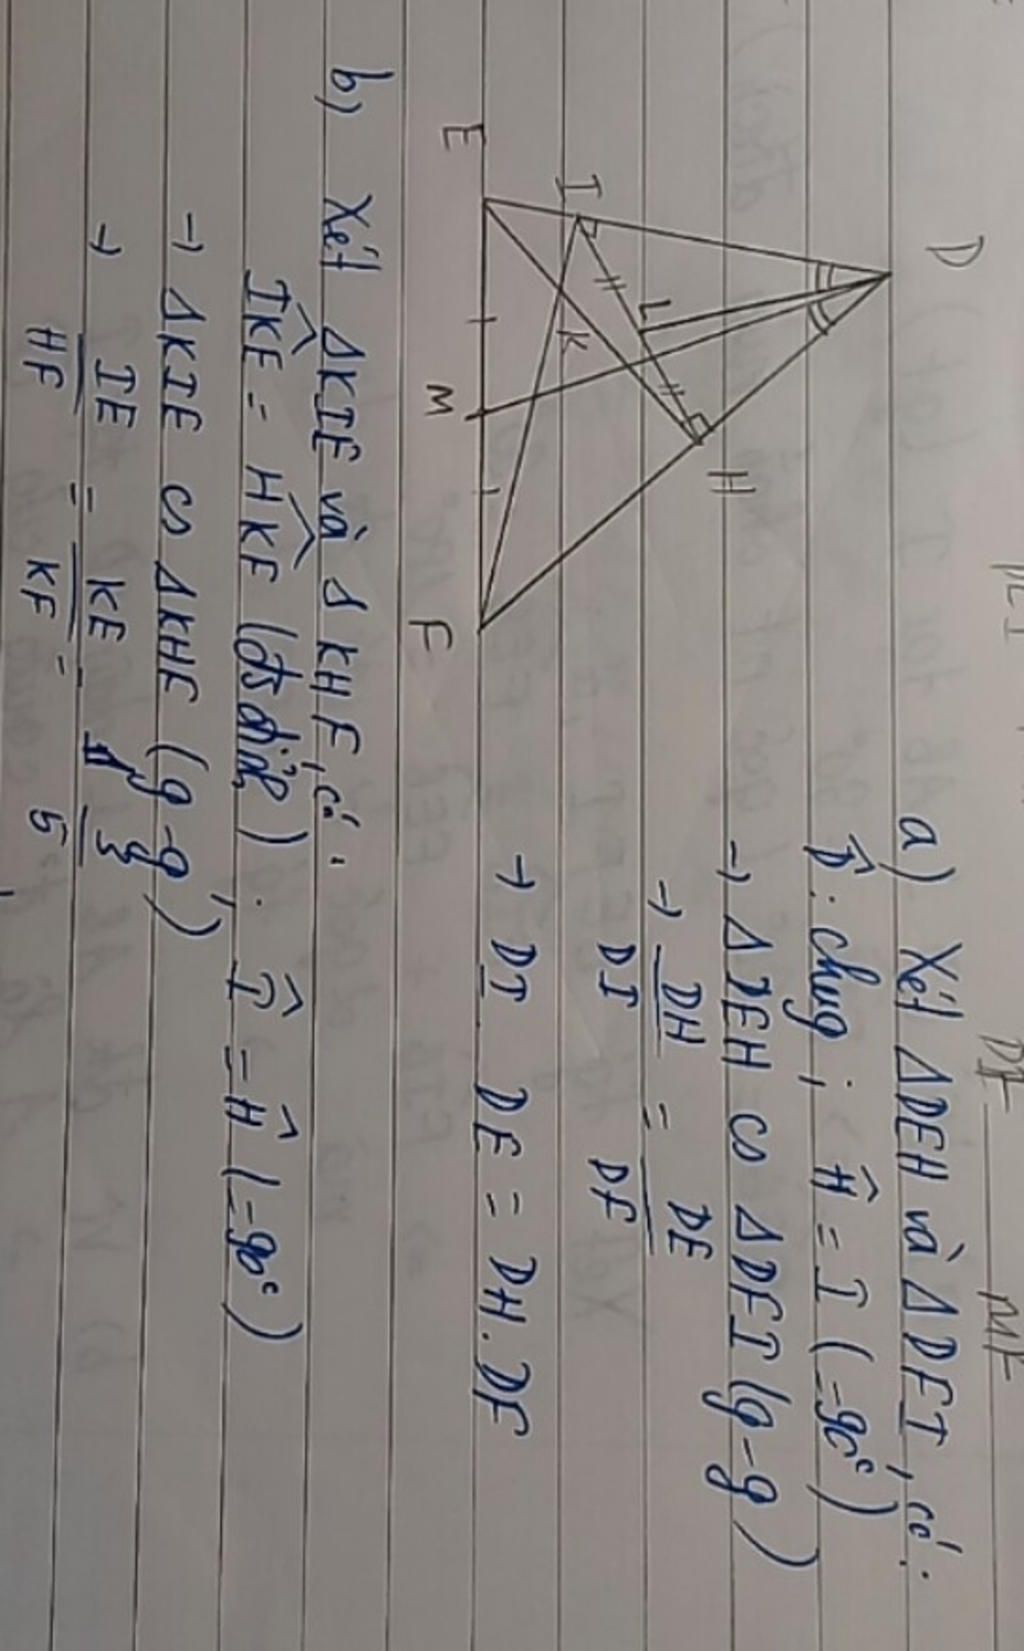 D
E
I
L
K
H
M
F
a) Xét ΔDEH và ΔDFI, có:
D̂: chug; Ĥ = I (=90°)
→ ΔDEH ᔕ ΔDFI (g-g)
→ DH/DI = DE/DF
→ DI. DE = DH. DF
b) Xét ΔKIE và Δ KHF, có:
IK̂E = HK̂F (đối đỉnh); Î = Ĥ (=90°)
→ ΔKIE ᔕ ΔKHF (g-g)
→ IE/HF = KE/KF =